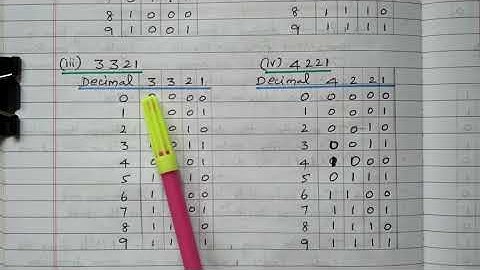 8 1 0 0 0
9 1 0 0 1
8 1 1 1 0
9 1 1 1 1
(iii) 3 3 2 1
Decimal 3 3 2 1
0 0 0 0
1 0 0 1
2 0 1 0
3 0 1 1
4 0 1
5 1
6 1 0 0
7 1 0 1
8 1 0
9 1 1
(iv) 4 2 2 1
Decimal 4 2 2 1
0 0 0 0 0
1 0 0 0 1
2 0 0 1 0
3 0 0 1 1
4 1 0 0 0
5 0 1 1 1
6 1 1 0 0
7 1 1 0 1
8 1 1 1 0
9 1 1 1 1